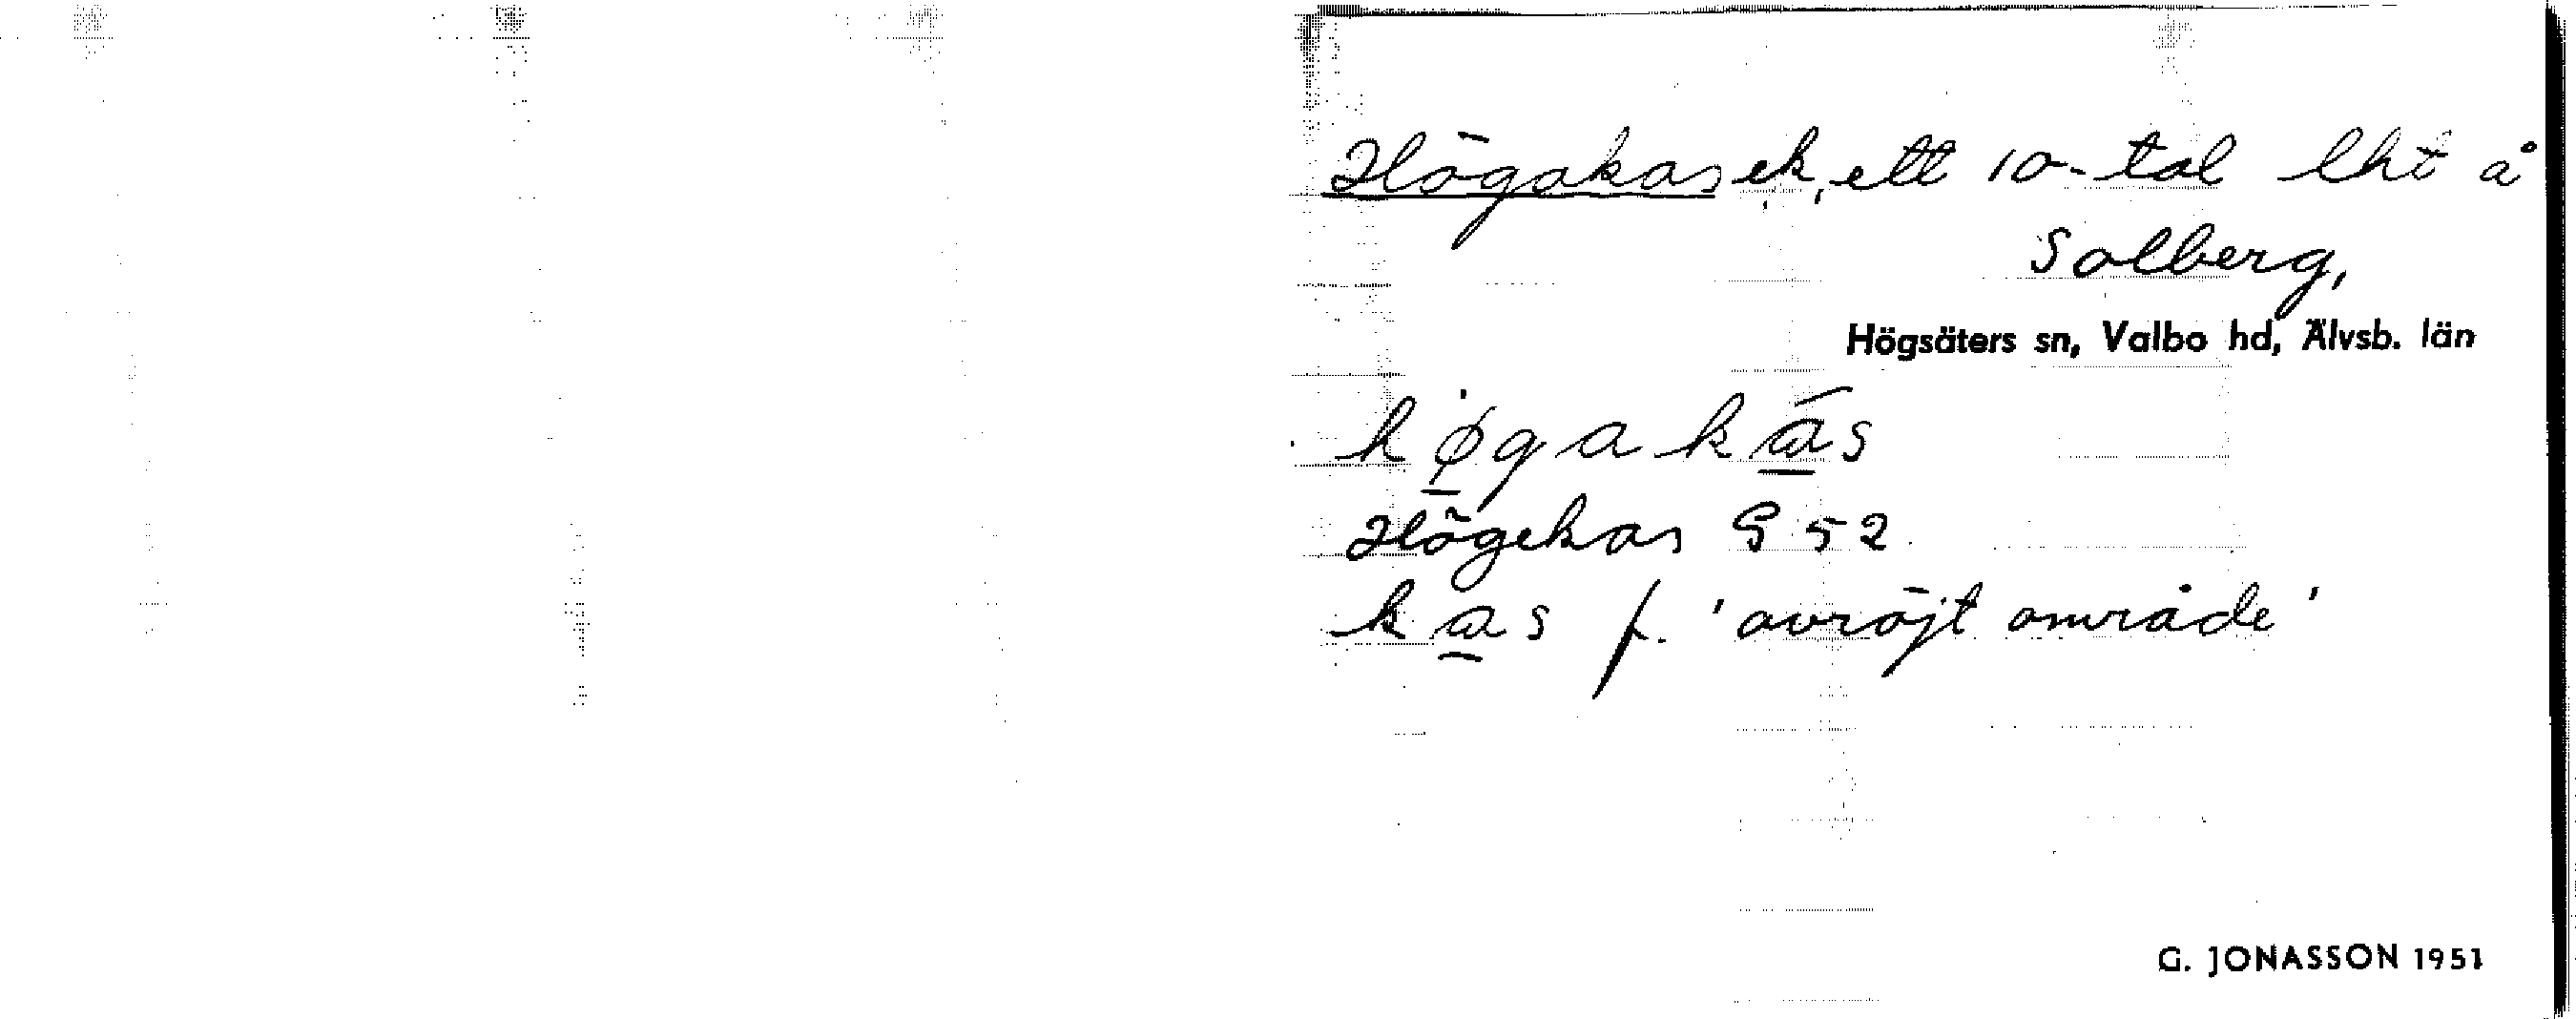 Högakas ek, ett 10-tal lht å
Solberg,
Högsäters sn, Valbo hd, Älvsb. län
hø̱gaka̱s
Högekas G 52
ka̱s f. 'avröjt område'
G. JONASSON 1951